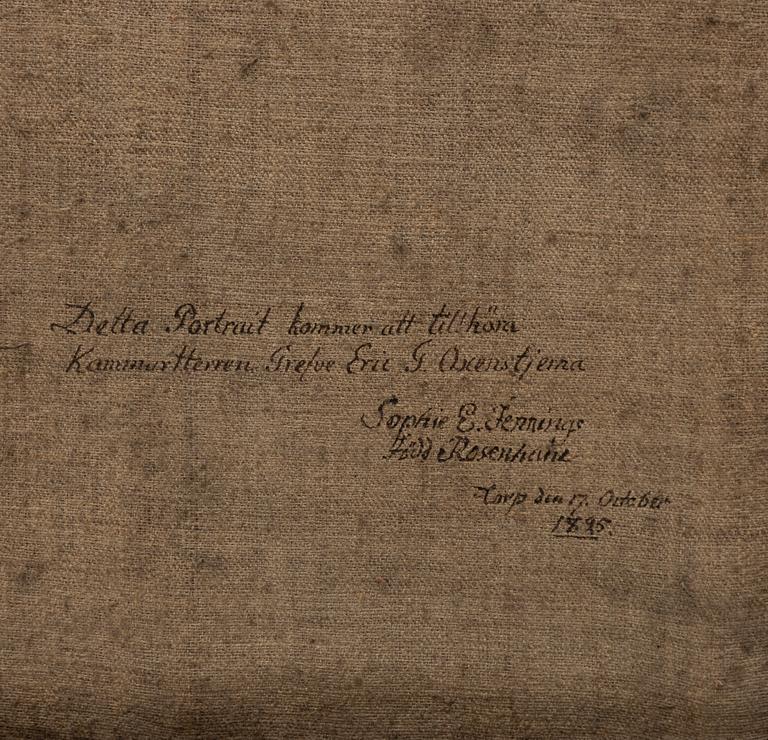 Detta Portrait kommer att tillhöra
Kammarherren Grefve Eric G. Oxenstjerna
Sophie E. Jennings
Född Rosenhane
Torp den 17. October
1895.